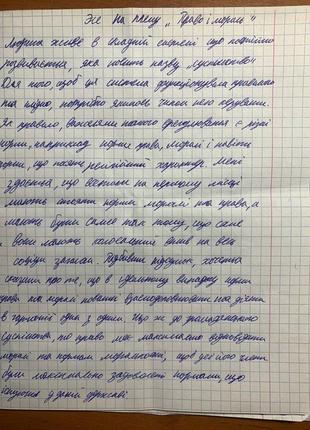 Есе на тему „Право і мораль"
Людина живе в складній системі що постійно
розвивається, яка носить назву „суспільство"
Для того, щоб ця система функціонувала правильно
та мірно, потрібно
Як правило, важелями такого врегулювання є різні
норми, наприклад норми права, моралі і навіть
норми, що носять релігійний характер. Мені
здається, що все таки на першому місці
мають стояти норми моралі та права, а
мають бути саме так тому, що саме
вони мають колосальний вплив на весь
соціум загалом. Підбивши підсумок, хочеться
сказати про те, що в ідеальному випадку норми
права та моралі повинні та діяти
в гармонії одна з одним. Що же до
суспільства, то право має максимально відповідати
моралі та нормам моральності, щоб усі його члени
були максимально задоволені нормами, що
існують у даній державі.